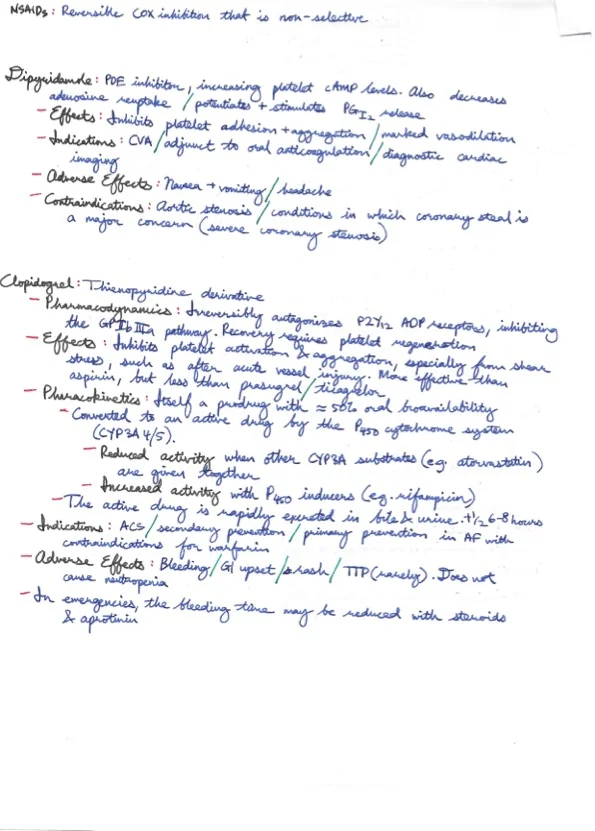 NSAIDs: Reversible COX inhibition that is non-selective
Dipyridamole: PDE inhibitor, increasing platelet cAMP levels. Also decreases
adenosine reuptake / potentiates + stimulates PGI2 release
- Effects: Inhibits platelet adhesion + aggregation / marked vasodilation
- Indications: CVA / adjunct to oral anticoagulation / diagnostic cardiac
imaging
- Adverse Effects: Nausea + vomiting / headache
- Contraindications: Aortic stenosis / conditions in which coronary steal is
a major concern (severe coronary stenosis)
Clopidogrel: Thienopyridine derivative
- Pharmacodynamics: Irreversibly antagonises P2Y12 ADP receptors, inhibiting
the GPIIbIIIa pathway. Recovery requires platelet regeneration
- Effects: Inhibits platelet activation & aggregation, especially from shear
stress, such as after acute vessel injury. More effective than
aspirin, but less than prasugrel / ticagrelor
- Pharacokinetics: Itself a prodrug with ≈ 50% oral bioavailability
- Converted to an active drug by the P450 cytochrome system
(CYP3A4/5).
- Reduced activity when other CYP3A substrates (eg. atorvastatin)
are given together
- Increased activity with P450 inducers (eg. rifampicin)
- The active drug is rapidly excreted in bile & urine. t1/2 6-8 hours
- Indications: ACS / secondary prevention / primary prevention in AF with
contraindications for warfarin
- Adverse Effects: Bleeding / GI upset / rash / TTP (rarely). Does not
cause neutropenia
- In emergencies, the bleeding time may be reduced with steroids
& aprotinin